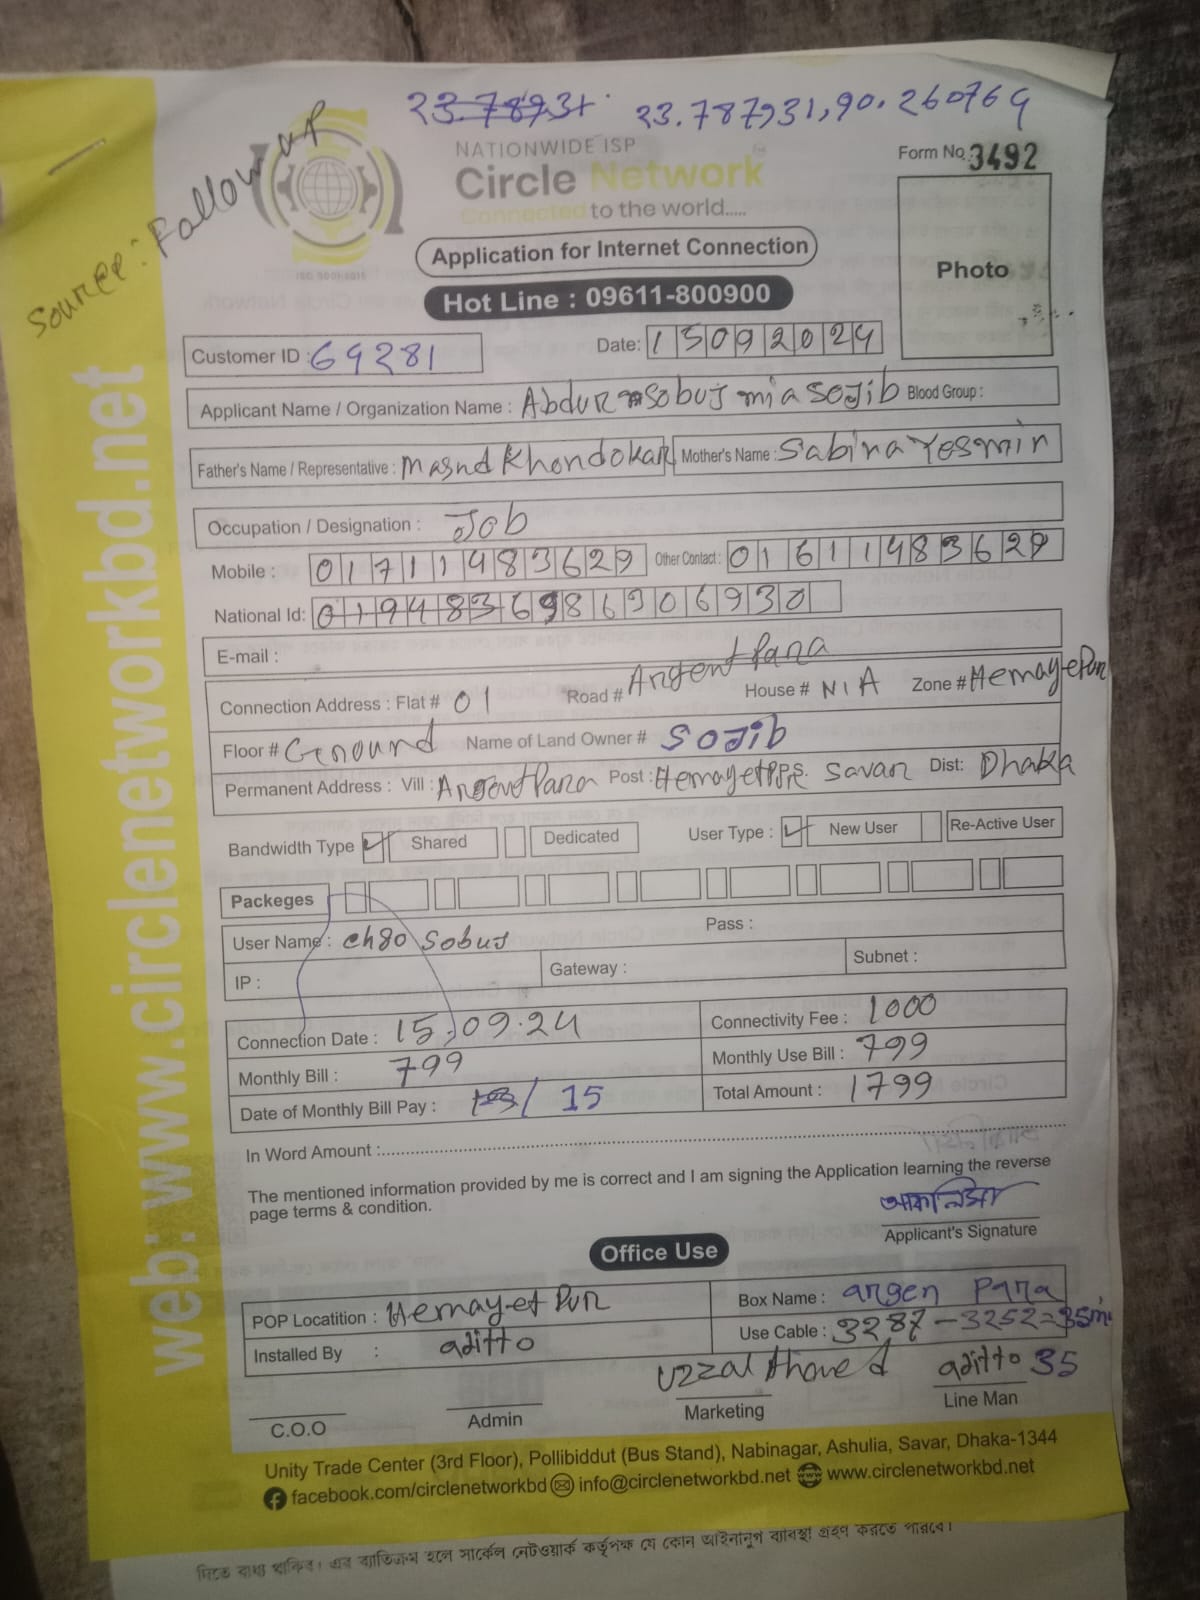 23.78931. 23.787931,90.260769
Source: Follow up
NATIONWIDE ISP
Circle Network
Connected to the world.....
ISO 9001:2015
Form No. 3492
Application for Internet Connection
Photo
Hot Line : 09611-800900
Customer ID : 69281 Date: 15092024
Applicant Name / Organization Name : Abdur sobuj mia sojib Blood Group :
Father's Name / Representative : Masud Khondokar Mother's Name : Sabina Yesmin
Occupation / Designation : Job
Mobile : 01711483629 Other Contact : 01611483629
National Id:
E-mail :
Connection Address : Flat # 01 Road # Argent Para House # N/A Zone # HemayetPur
Floor # Ground Name of Land Owner # Sojib
Permanent Address : Vill : Argent Para Post : Savar Dist: Dhaka
Bandwidth Type Shared Dedicated User Type : New User Re-Active User
Packeges
User Name : ch80 sobuj Pass :
IP : Gateway : Subnet :
Connection Date : 15.09.24 Connectivity Fee : 1000
Monthly Bill : 799 Monthly Use Bill : 799
Date of Monthly Bill Pay : / 15 Total Amount : 1799
In Word Amount :
The mentioned information provided by me is correct and I am signing the Application learning the reverse
page terms & condition.
Applicant's Signature
Office Use
POP Locatition : Hemayet Pur Box Name : argen Para
Installed By : aditto Use Cable : 3287 - 3252=35m
Uzzal Ahmed aditto 35
C.O.O Admin Marketing Line Man
Unity Trade Center (3rd Floor), Pollibiddut (Bus Stand), Nabinagar, Ashulia, Savar, Dhaka-1344
facebook.com/circlenetworkbd info@circlenetworkbd.net www.circlenetworkbd.net
web: www.circlenetworkbd.net
দিতে বাধ্য থাকিব। এর ব্যতিক্রম হলে সার্কেল নেটওয়ার্ক কর্তৃপক্ষ যে কোন আইনানুগ ব্যাবস্থা গ্রহণ করতে পারবে।